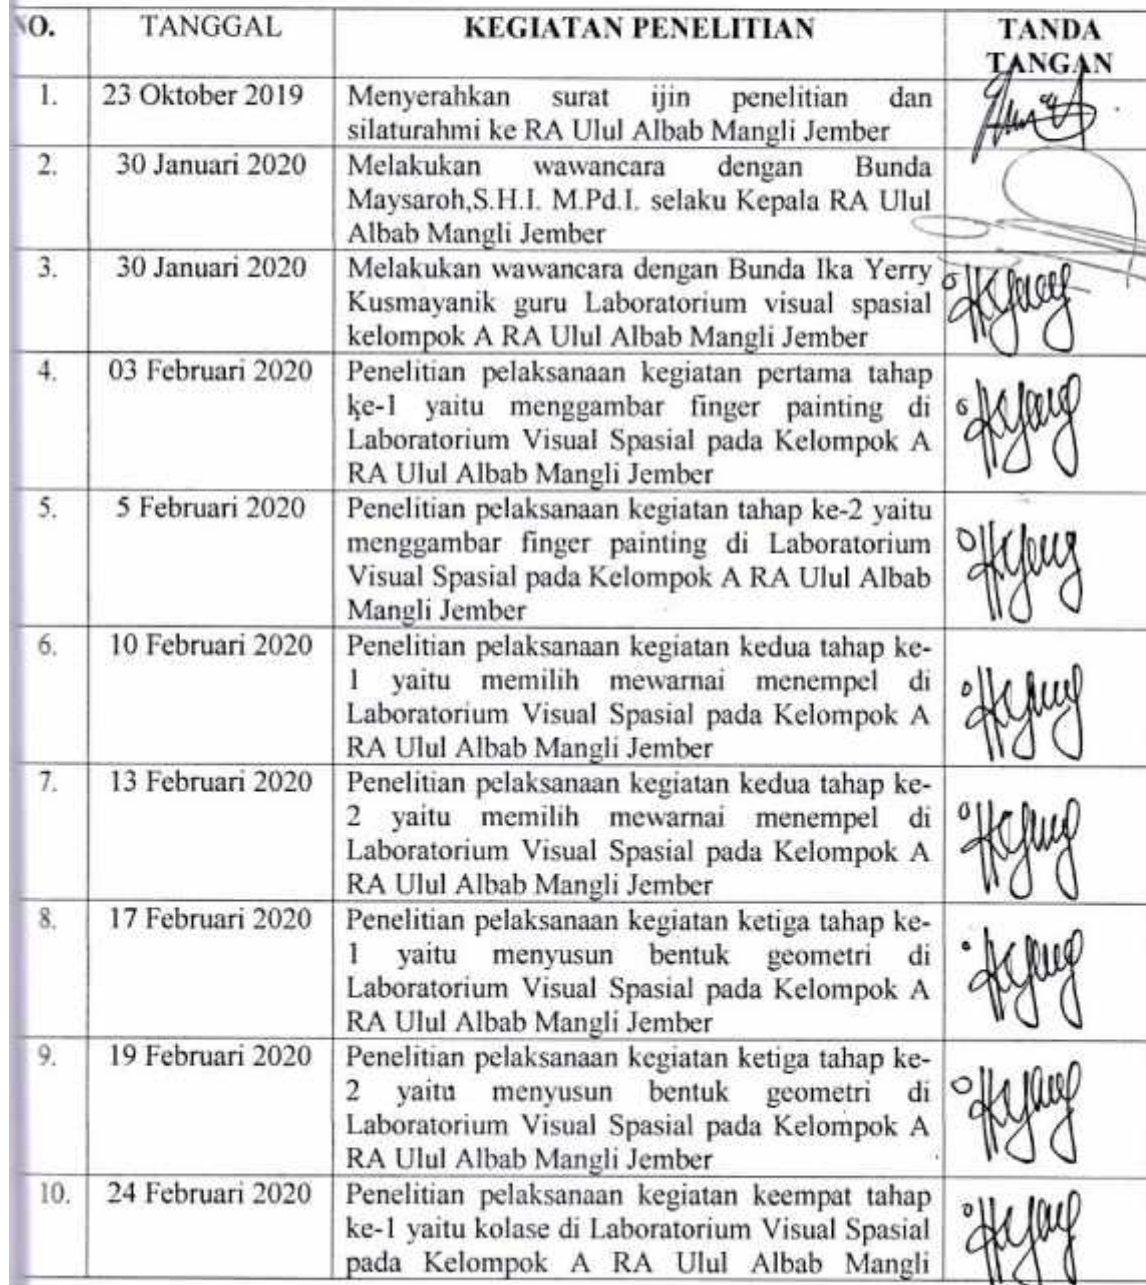 NO. TANGGAL KEGIATAN PENELITIAN TANDA
TANGAN
1. 23 Oktober 2019 Menyerahkan surat ijin penelitian dan
silaturahmi ke RA Ulul Albab Mangli Jember
2. 30 Januari 2020 Melakukan wawancara dengan Bunda
Maysaroh,S.H.I. M.Pd.I. selaku Kepala RA Ulul
Albab Mangli Jember
3. 30 Januari 2020 Melakukan wawancara dengan Bunda Ika Yerry
Kusmayanik guru Laboratorium visual spasial
kelompok A RA Ulul Albab Mangli Jember
4. 03 Februari 2020 Penelitian pelaksanaan kegiatan pertama tahap
ke-1 yaitu menggambar finger painting di
Laboratorium Visual Spasial pada Kelompok A
RA Ulul Albab Mangli Jember
5. 5 Februari 2020 Penelitian pelaksanaan kegiatan tahap ke-2 yaitu
menggambar finger painting di Laboratorium
Visual Spasial pada Kelompok A RA Ulul Albab
Mangli Jember
6. 10 Februari 2020 Penelitian pelaksanaan kegiatan kedua tahap ke-
1 yaitu memilih mewarnai menempel di
Laboratorium Visual Spasial pada Kelompok A
RA Ulul Albab Mangli Jember
7. 13 Februari 2020 Penelitian pelaksanaan kegiatan kedua tahap ke-
2 yaitu memilih mewarnai menempel di
Laboratorium Visual Spasial pada Kelompok A
RA Ulul Albab Mangli Jember
8. 17 Februari 2020 Penelitian pelaksanaan kegiatan ketiga tahap ke-
1 yaitu menyusun bentuk geometri di
Laboratorium Visual Spasial pada Kelompok A
RA Ulul Albab Mangli Jember
9. 19 Februari 2020 Penelitian pelaksanaan kegiatan ketiga tahap ke-
2 yaitu menyusun bentuk geometri di
Laboratorium Visual Spasial pada Kelompok A
RA Ulul Albab Mangli Jember
10. 24 Februari 2020 Penelitian pelaksanaan kegiatan keempat tahap
ke-1 yaitu kolase di Laboratorium Visual Spasial
pada Kelompok A RA Ulul Albab Mangli